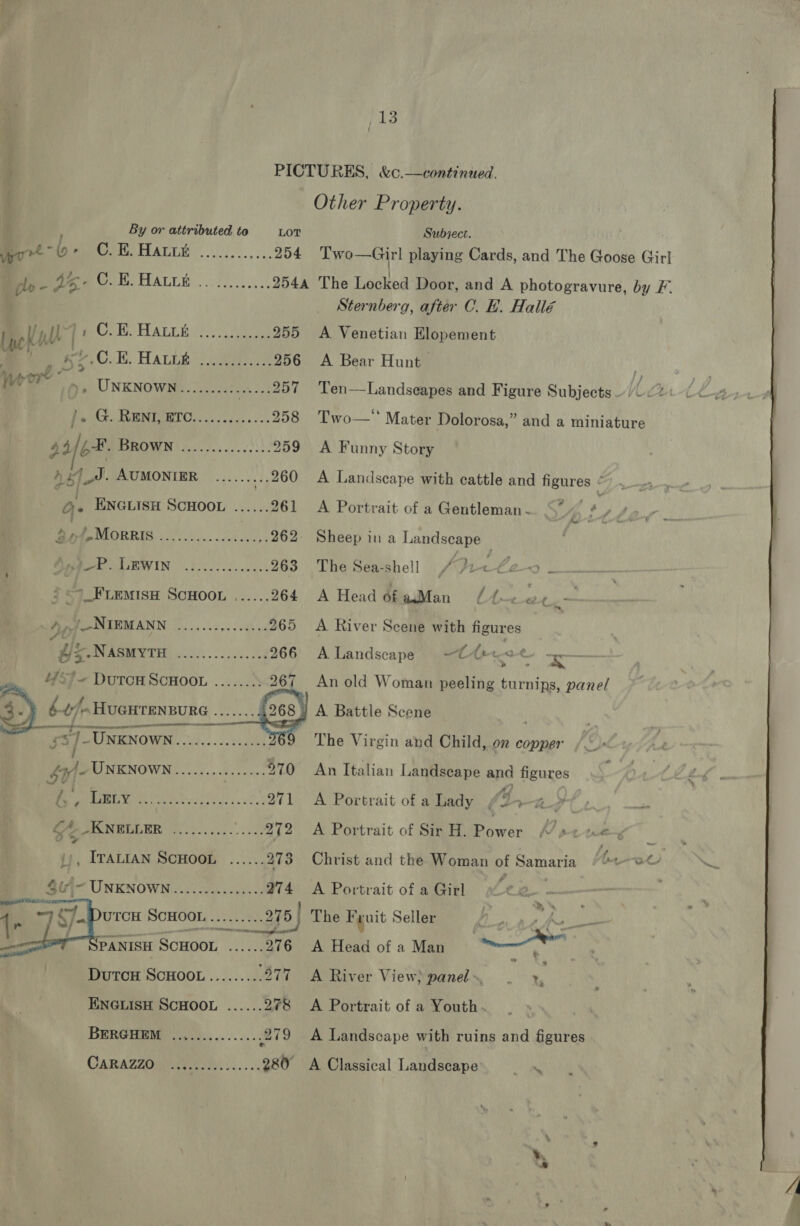 13
PICTURES, &c.—continued.
Other Property.
By or attributed to LOT Subject.
C. E. HALLÉ ............ 254 Two—Girl playing Cards, and The Goose Girl
C. E. HALLÉ ............ 254A The Locked Door, and A photogravure, by F. Sternberg, after C. E. Hallé
C. E. HALLÉ ............ 255 A Venetian Elopement
C. E. HALLÉ ............ 256 A Bear Hunt
UNKNOWN ............ 257 Ten—Landscapes and Figure Subjects
G. RENI, ETC. ............ 258 Two—“Mater Dolorosa,” and a miniature
F. BROWN ............ 259 A Funny Story
J. AUMONIER ............ 260 A Landscape with cattle and figures
ENGLISH SCHOOL ...... 261 A Portrait of a Gentleman
MORRIS ............ 262 Sheep in a Landscape
P. LEWIN ............ 263 The Sea-shell
FLEMISH SCHOOL ...... 264 A Head of a Man
NIEMANN ............ 265 A River Scene with figures
NASMYTH ............ 266 A Landscape
DUTCH SCHOOL ........ 267 An old Woman peeling turnips, panel
HUGHTENBURG ........ 268 A Battle Scene
UNKNOWN ............ 269 The Virgin and Child, on copper
UNKNOWN ............ 270 An Italian Landscape and figures
LELY ............ 271 A Portrait of a Lady
KNELLER ............ 272 A Portrait of Sir H. Power
ITALIAN SCHOOL ...... 273 Christ and the Woman of Samaria
UNKNOWN ............ 274 A Portrait of a Girl
DUTCH SCHOOL ......... 275 The Fruit Seller
SPANISH SCHOOL ...... 276 A Head of a Man
DUTCH SCHOOL ......... 277 A River View, panel
ENGLISH SCHOOL ...... 278 A Portrait of a Youth
BERGHEM ............ 279 A Landscape with ruins and figures
CARAZZO ............ 280 A Classical Landscape